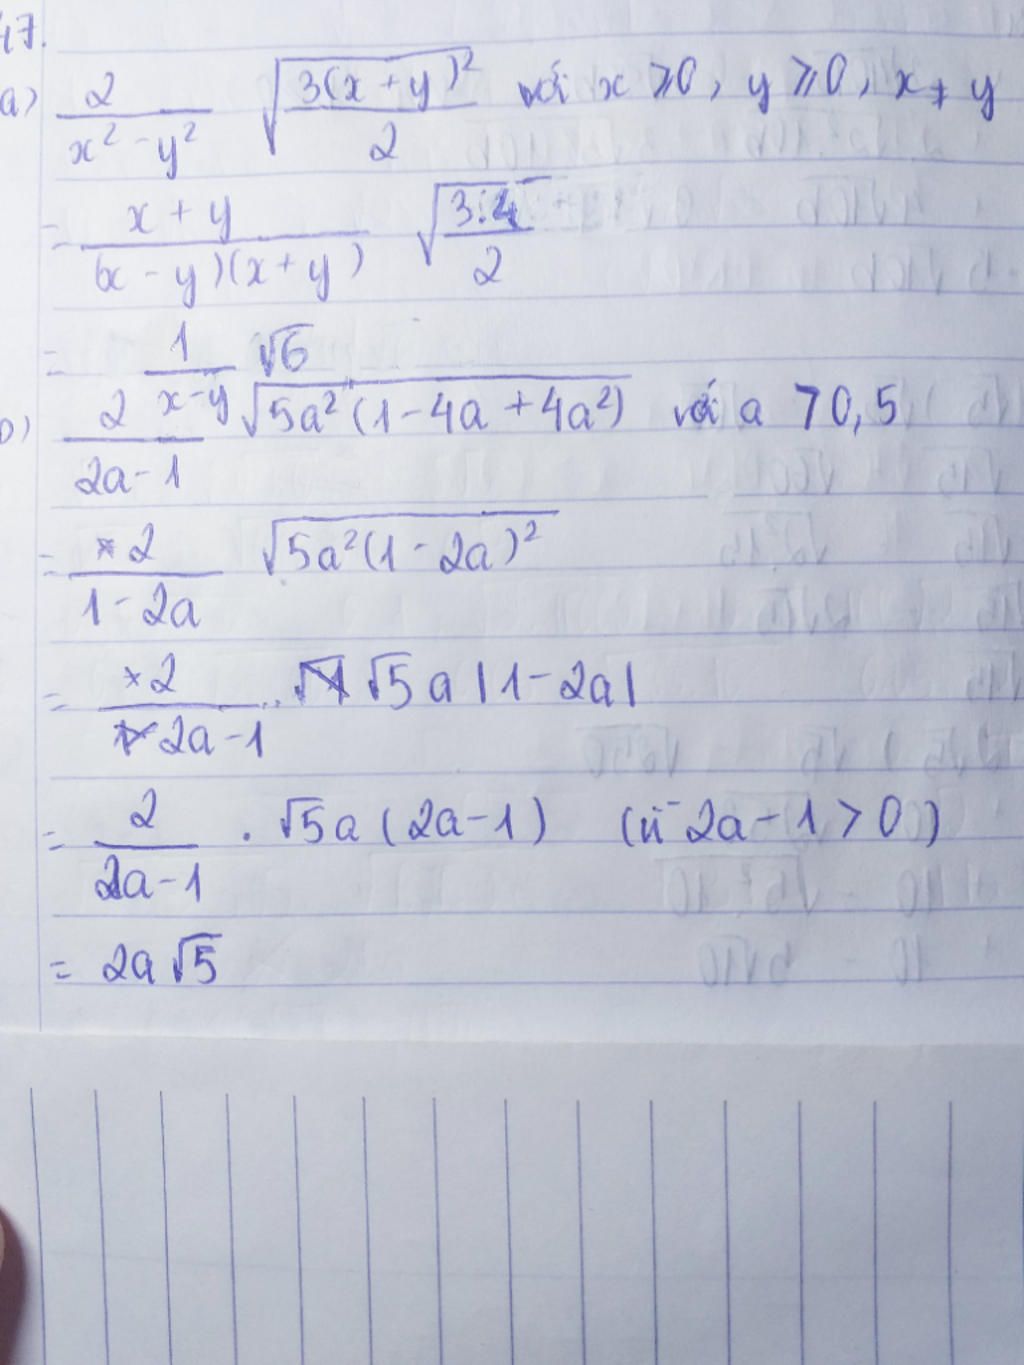 47.
a) 2/(x² - y²) √(3(x + y)²/2) với x ≥ 0, y ≥ 0, x ≠ y
= (x + y)/((x - y)(x + y)) √(3.4/2)
= 1/(x - y) √6
b) 2/(2a - 1) √(5a²(1 - 4a + 4a²)) với a > 0,5
= 2/(1 - 2a) √(5a²(1 - 2a)²)
= 2/(2a - 1) . √5 a |1 - 2a|
= 2/(2a - 1) . √5 a (2a - 1) (vì 2a - 1 > 0)
= 2a √5